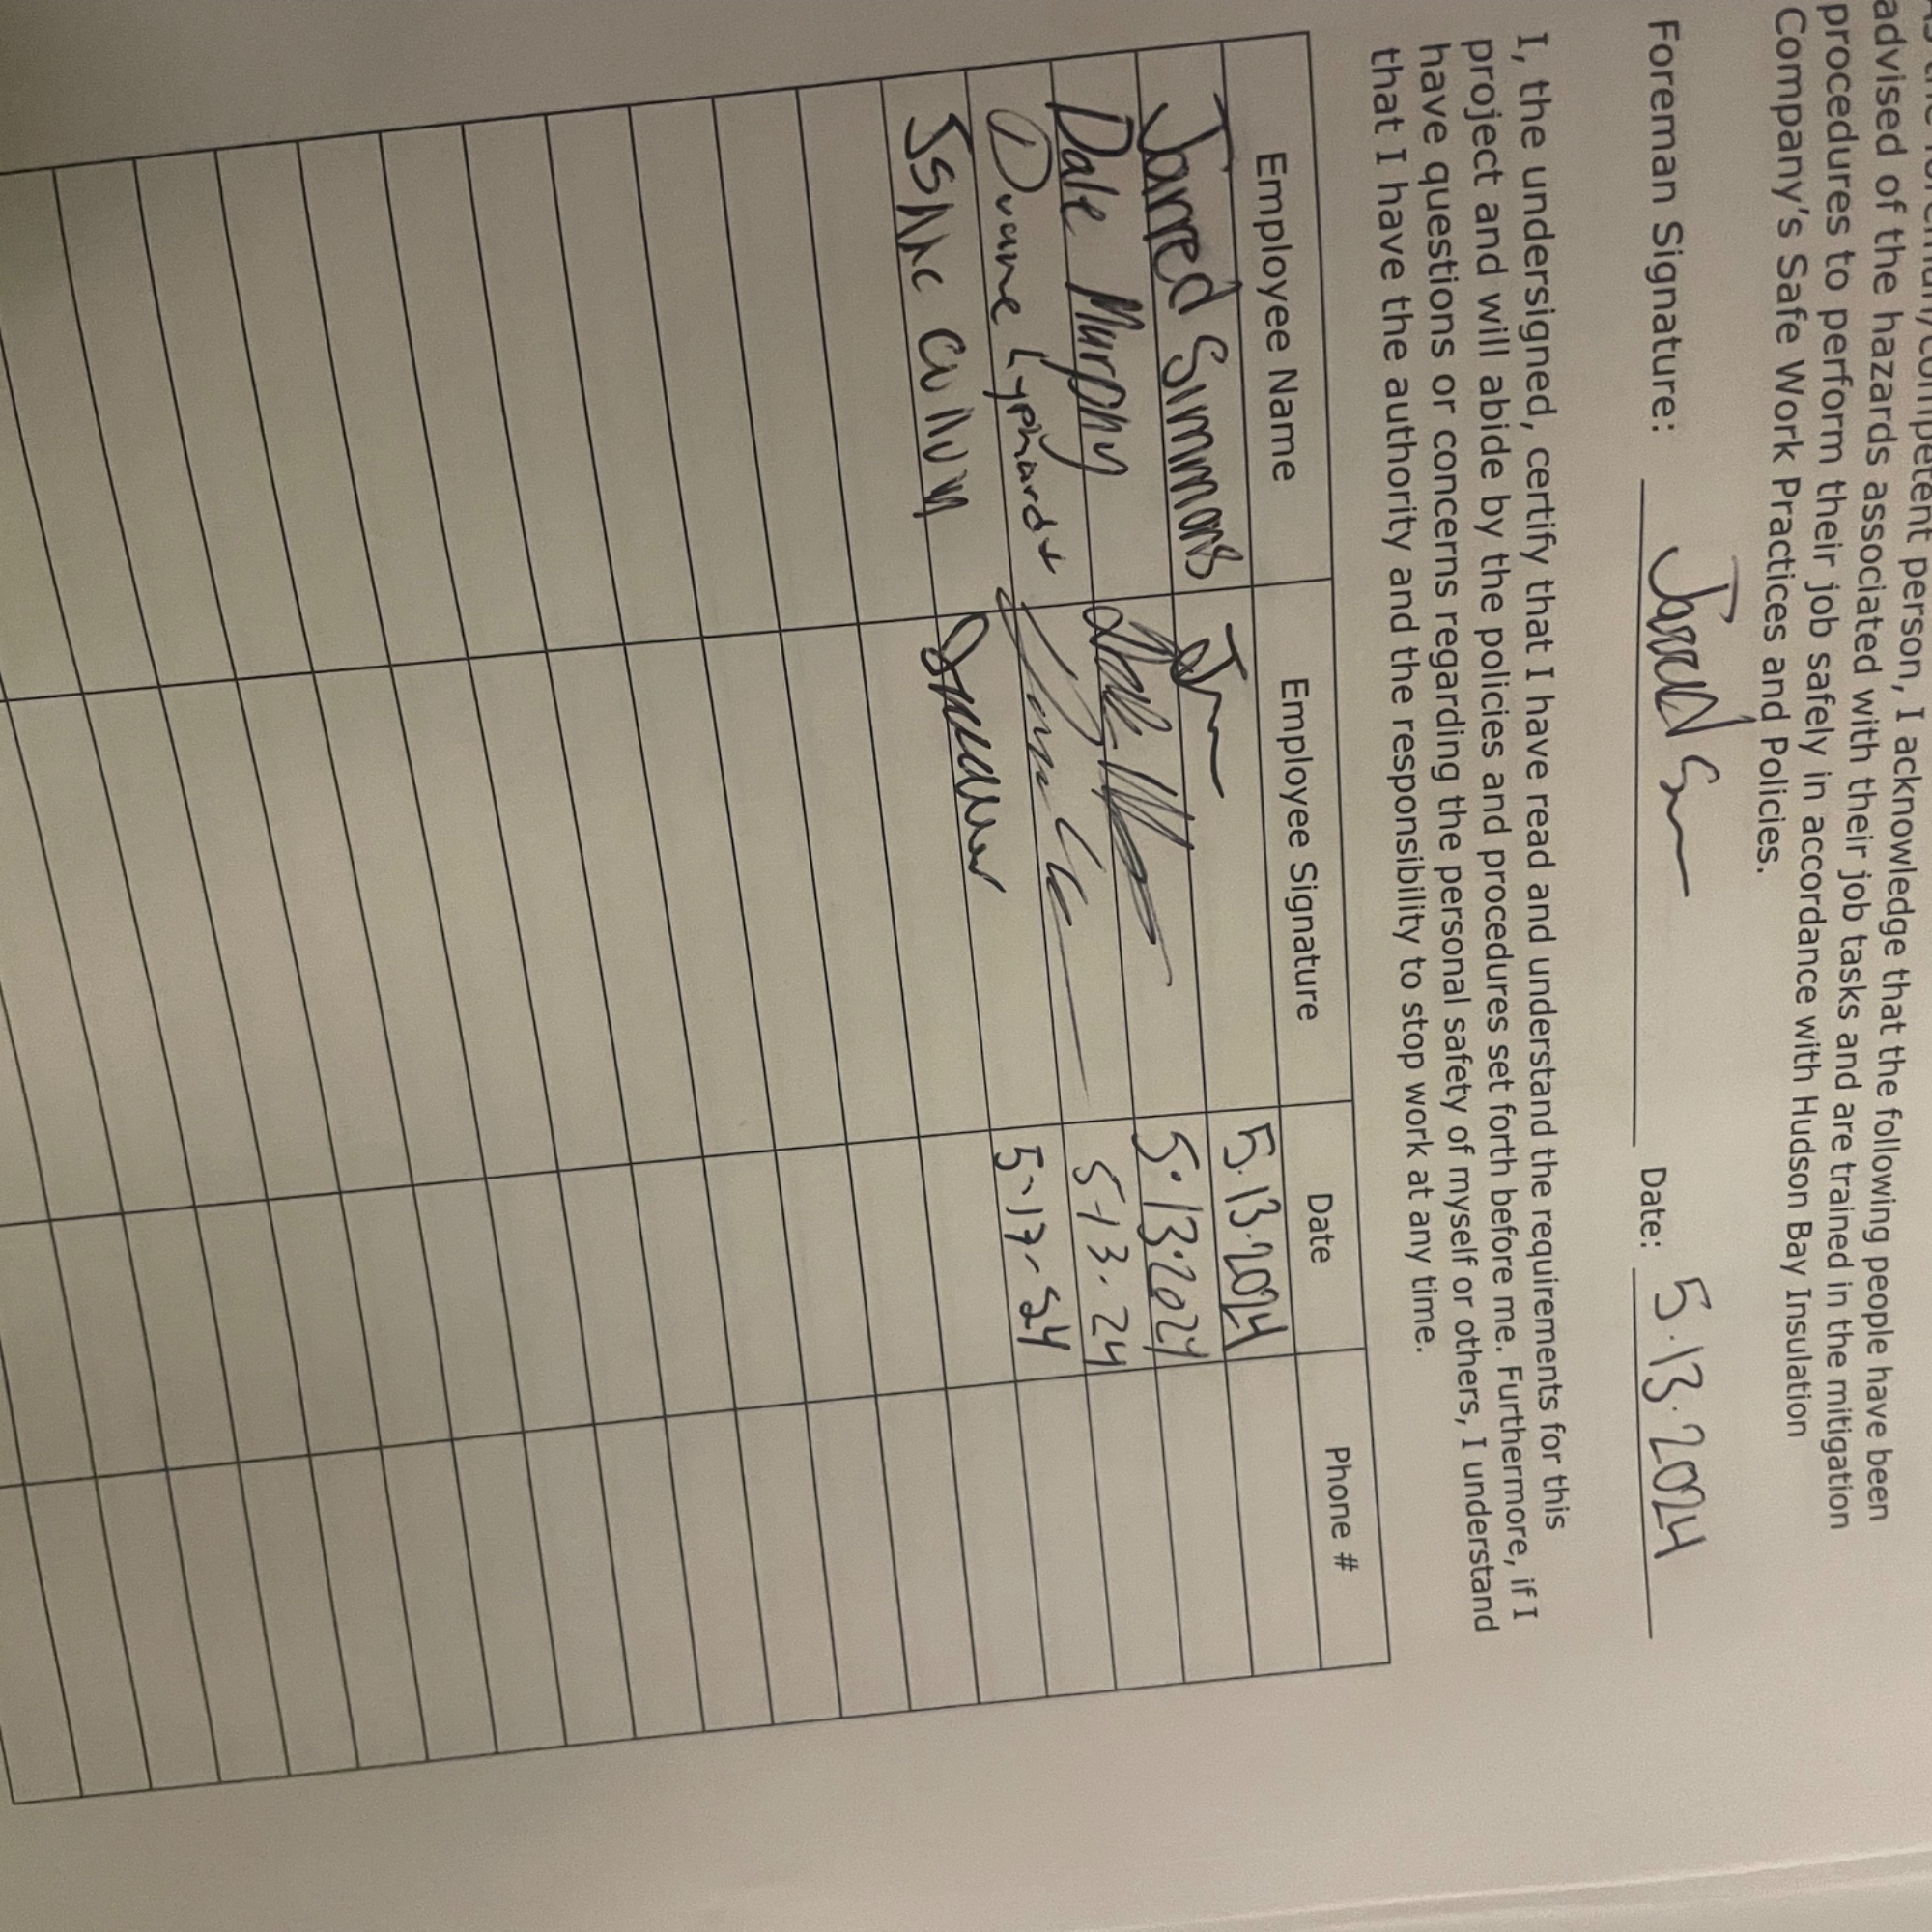 person, I acknowledge that the following people have been
advised of the hazards associated with their job tasks and are trained in the mitigation
procedures to perform their job safely in accordance with Hudson Bay Insulation
Company's Safe Work Practices and Policies.
Foreman Signature: Date: 5.13.2024
I, the undersigned, certify that I have read and understand the requirements for this
project and will abide by the policies and procedures set forth before me. Furthermore, if I
have questions or concerns regarding the personal safety of myself or others, I understand
that I have the authority and the responsibility to stop work at any time.
Employee Name Employee Signature Date Phone #
Jarred Simmons 5.13.2024
Dale Murphy 5.13.2024
Duane Lyphardt 5-13-24
5-13-24